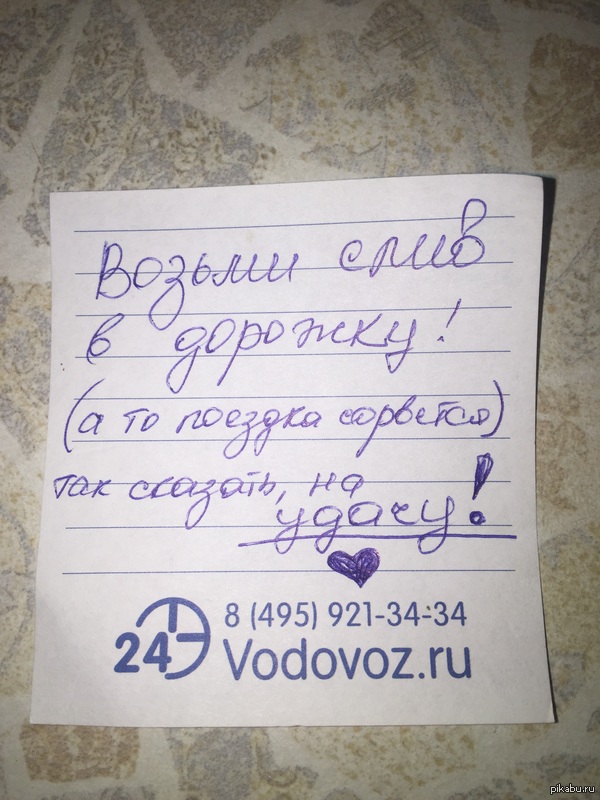 Возьми слив
в дорожку!
(а то поездка сорвется)
так сказать, на
удачу!
24
8 (495) 921-34-34
Vodovoz.ru
pikabu.ru